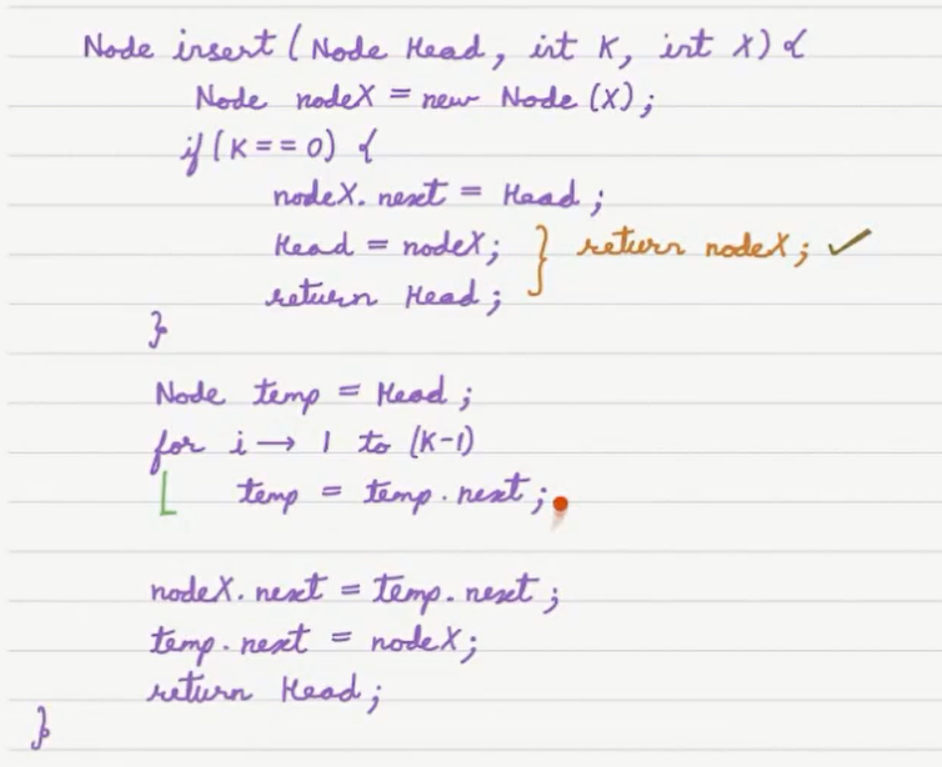 Node insert (Node Head, int K, int X) {
Node nodeX = new Node (X);
if (K == 0) {
nodeX. next = Head;
Head = nodeX; } return nodeX; ✓
return Head;
}
Node temp = Head;
for i → 1 to (K-1)
[ temp = temp. next;
nodeX. next = temp. next;
temp. next = nodeX;
return Head;
}